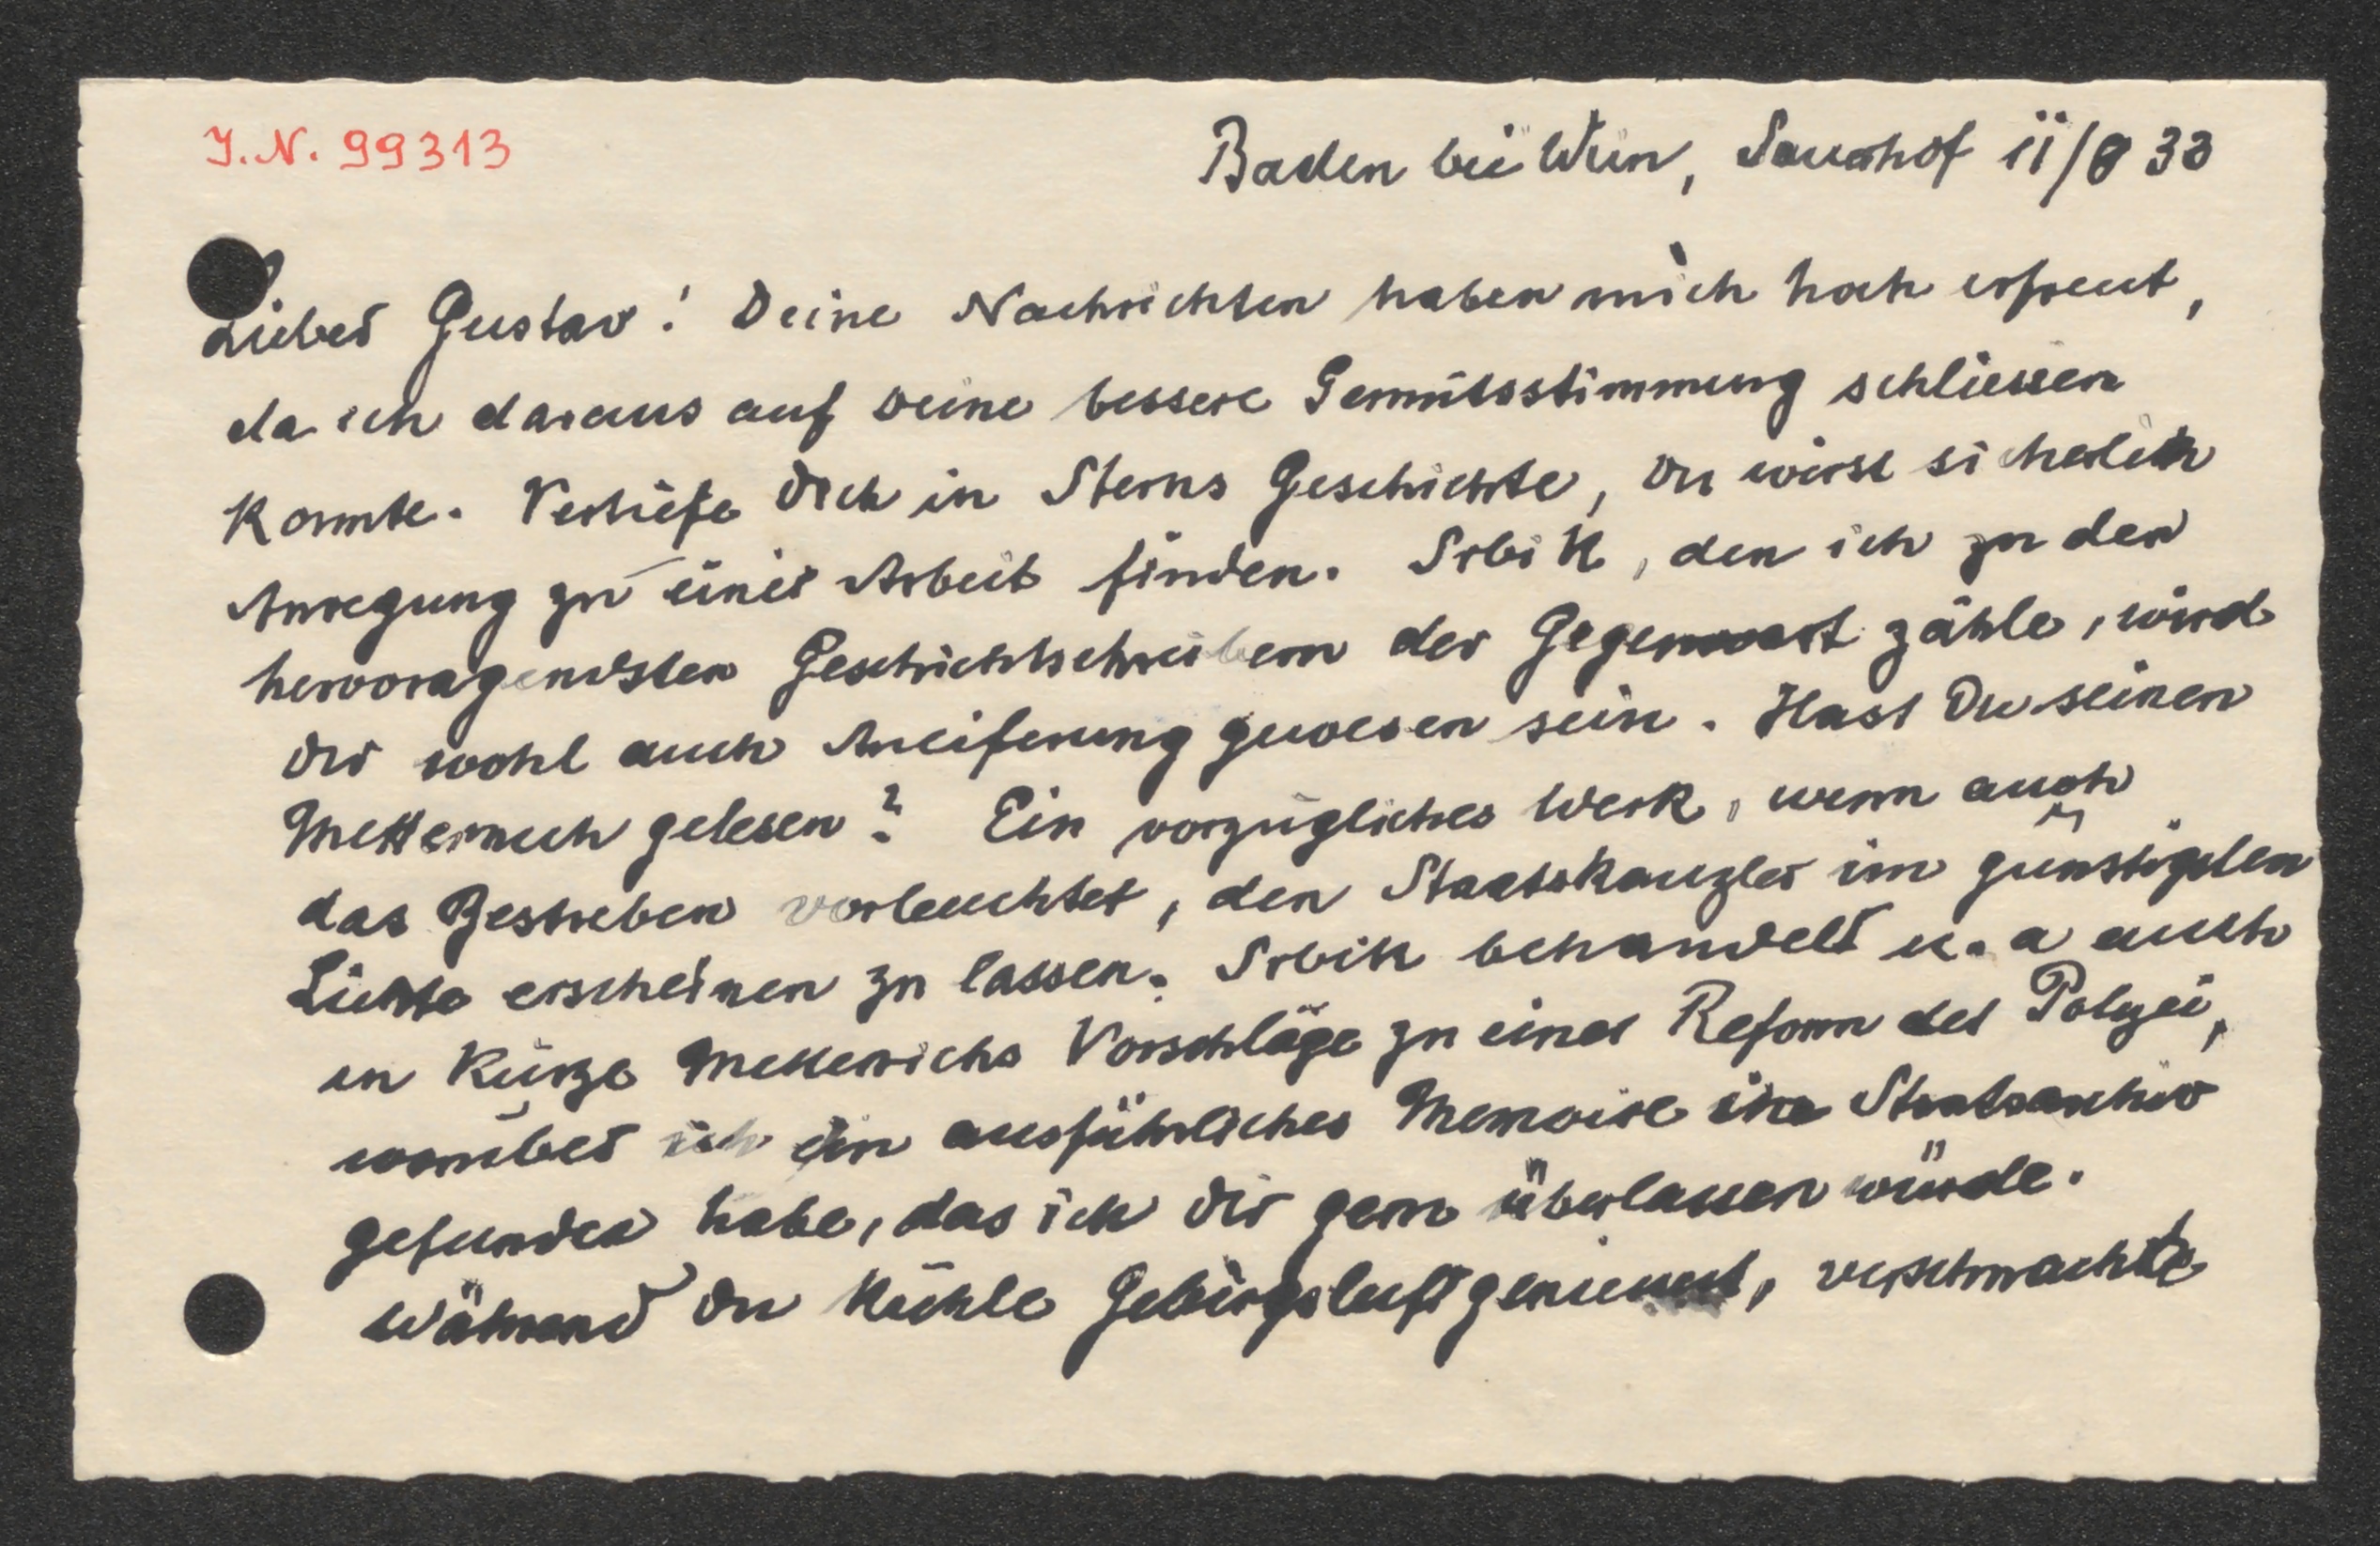 J.N. 99313
Baden bei Wien, Sauerhof 11/8 33
Lieber Gustav! Deine Nachrichten haben mich hoch erfreut,
da ich daraus auf Deine bessere Gemütsstimmung schliessen
konnte. Vertiefe Dich in Sterns Geschichte, Du wirst sicherlich
Anregung zu einer Arbeit finden. Srbik, den ich zu den
hervoragendsten Geschichtschreibern der Gegenwart zähle, wird
Dir wohl auch Aneiferung gewesen sein. Hast Du seinen
Metternich gelesen? Ein vorzügliches Werk, wenn auch
das Bestreben vorleuchtet, den Staatskanzler im günstigsten
Lichte erscheinen zu lassen. Srbik behandelt u. a auch
in Kürze Metternichs Vorschläge zu einer Reform der Polizei,
worüber ich ein ausführliches Memoire im Staatsarchiv
gefunden habe, das ich Dir gern überlassen würde.
Während Du kühle Gebirgsluft geniessest, verschmachte